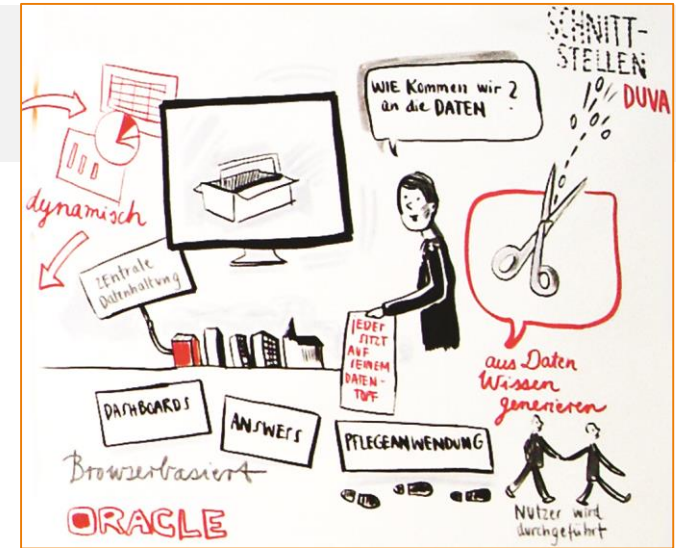 SCHNITT-
STELLEN
DUVA
WIE Kommen wir ?
an die DATEN
dynamisch
ZEntrale
Datenhaltung
JEDER
SITZT
AUF
SEINEM
DATEN-
TOPF
aus Daten
Wissen
generieren
DASHBOARDS
ANSWERS
PFLEGEANWENDUNG
Browserbasiert
ORACLE
Nutzer wird
durchgeführt